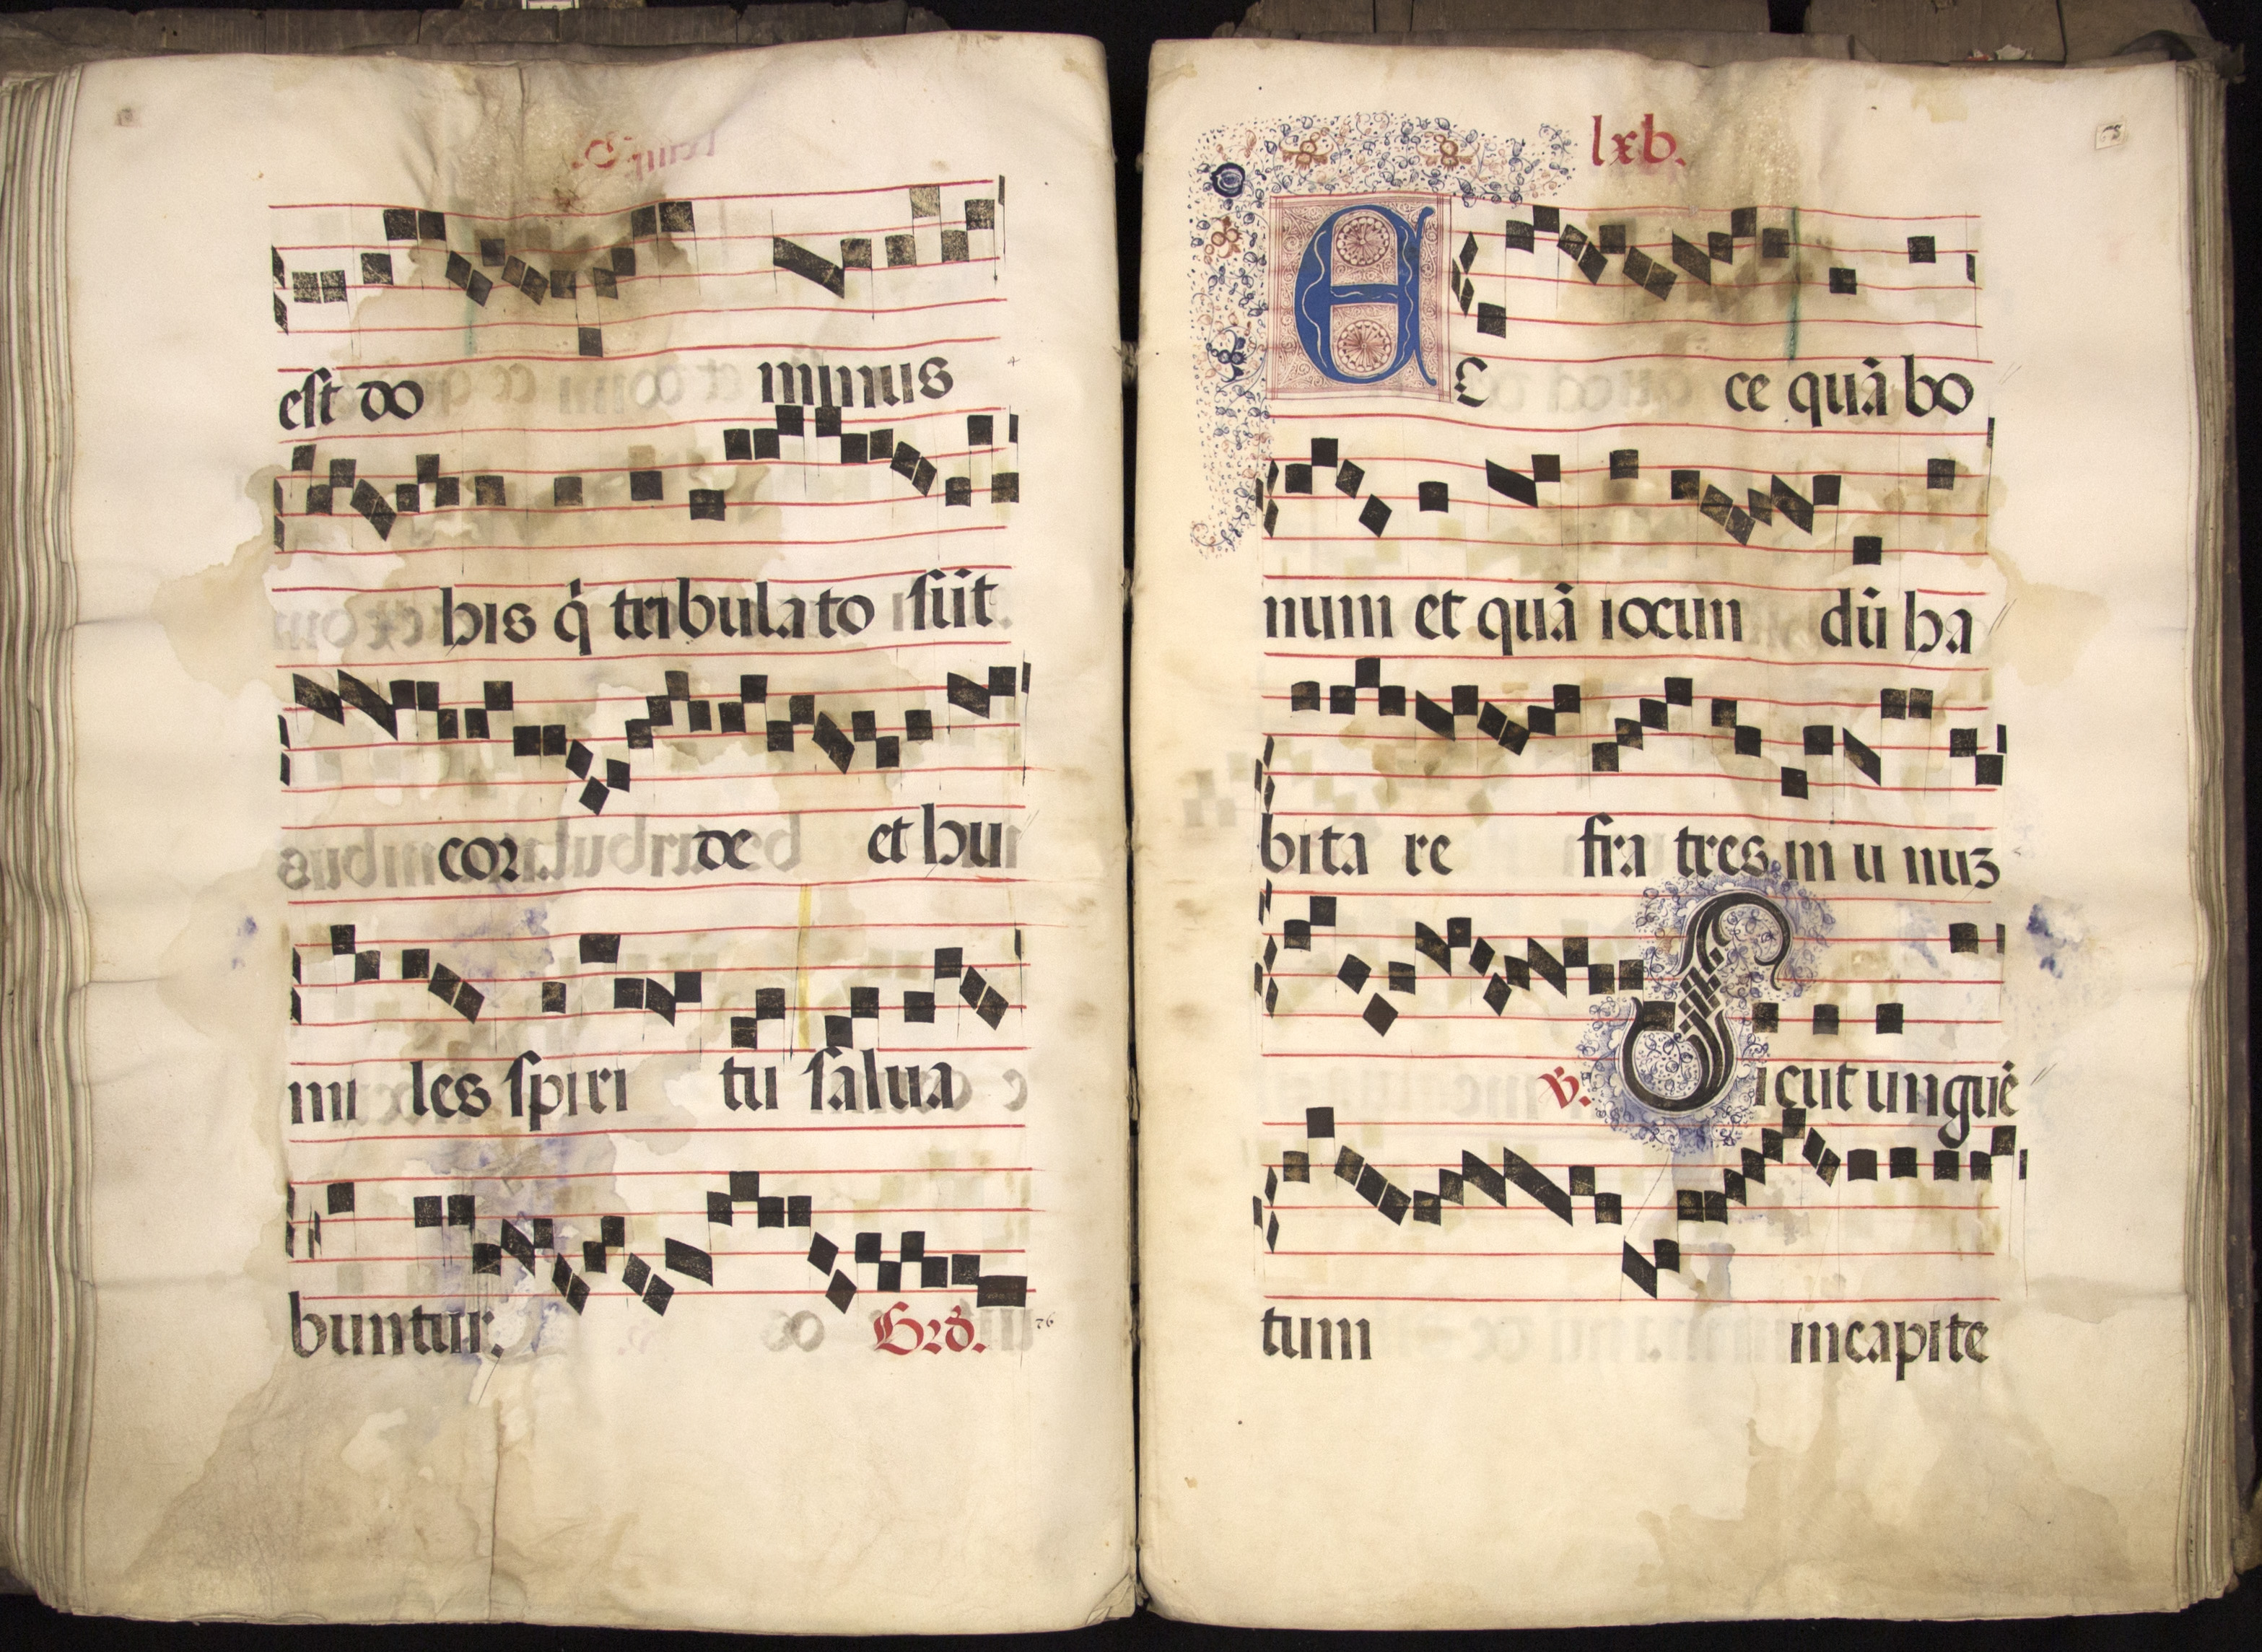 est do minus
his q̇ tribulato sūt.
cor. de et hu
mi les spiri tu salua
buntur. Grd̄.
76
lxv.
E C ce quā bo
num et quā iocun dū ha
bita re fra tres in u nuʒ
℣. Sicut unguē
tum incapite